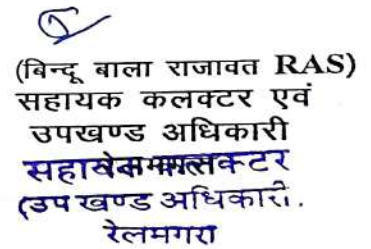 (बिन्दू बाला राजावत RAS)
सहायक कलक्टर एवं
उपखण्ड अधिकारी
सहायक कलक्टर
(उप खण्ड अधिकारी.
रेलमगरा